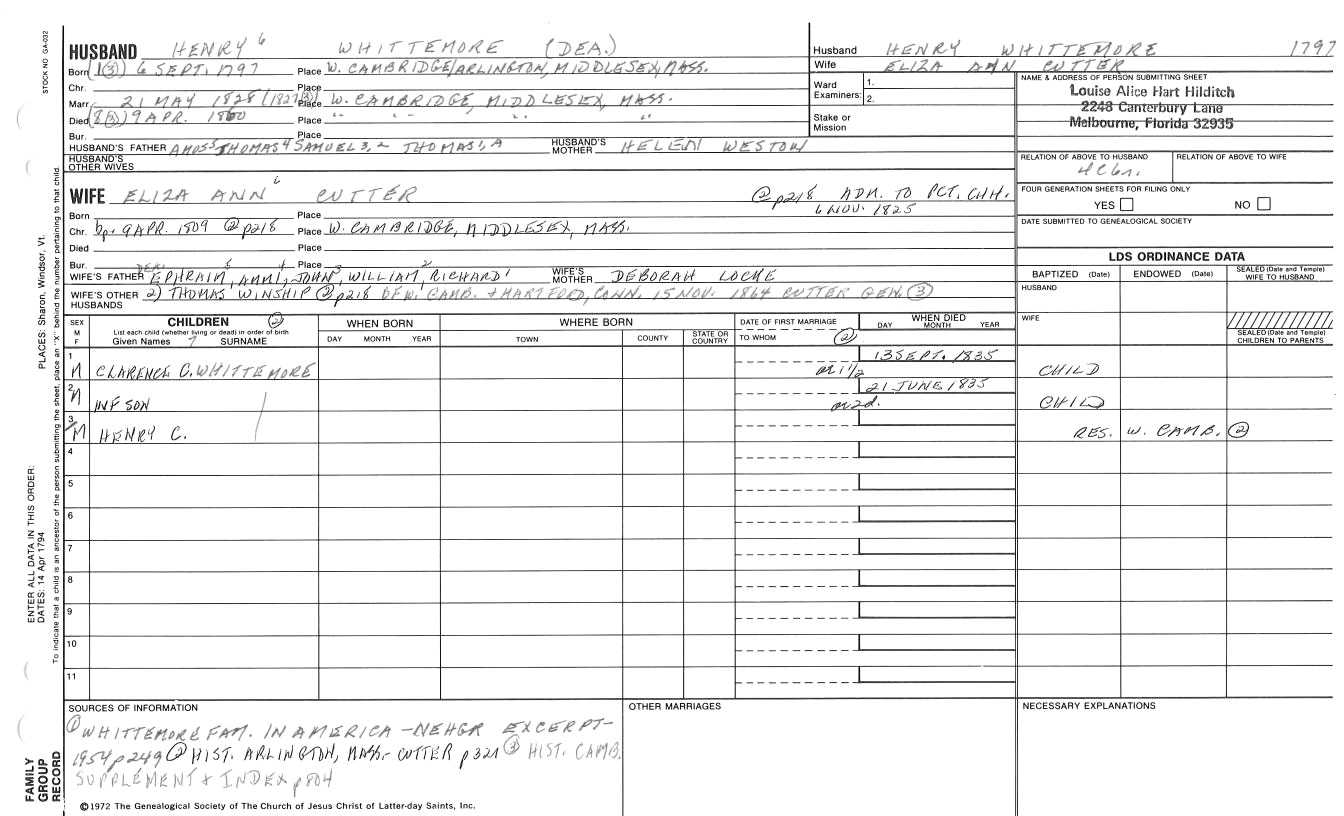 STOCK NO GA-032
HUSBAND HENRY 6 WHITTEMORE (DEA.)
Born (1③) 6 SEPT. 1797 Place W. CAMBRIDGE/ARLINGTON, MIDDLESEX, MASS.
Chr. Place
Marr. 21 MAY 1828 (1827③) Place W. CAMBRIDGE, MIDDLESEX, MASS.
Died (8③) 9 APR. 1860 Place " " " "
Bur. Place
HUSBAND'S FATHER AMOS5 THOMAS4 SAMUEL3, 2 THOMAS1, A HUSBAND'S MOTHER HELEN WESTON
HUSBAND'S OTHER WIVES
Husband HENRY WHITTEMORE 1797
Wife ELIZA ANN CUTTER
Ward Examiners: 1.
2.
Stake or Mission
NAME & ADDRESS OF PERSON SUBMITTING SHEET
Louise Alice Hart Hilditch
2248 Canterbury Lane
Melbourne, Florida 32935
RELATION OF ABOVE TO HUSBAND RELATION OF ABOVE TO WIFE
FOUR GENERATION SHEETS FOR FILING ONLY
YES NO
DATE SUBMITTED TO GENEALOGICAL SOCIETY
WIFE ELIZA ANN 6 CUTTER ② p218 ADM. TO PCT. CHH.
6 NOV. 1825
Born Place
Chr. bp. 9 APR. 1809 ② p218 Place W. CAMBRIDGE, MIDDLESEX, MASS.
Died Place
Bur. Place
WIFE'S FATHER DEA. EPHRAIM5, AMMI4, JOHN3, WILLIAM2, RICHARD1 WIFE'S MOTHER DEBORAH LOCKE
WIFE'S OTHER HUSBANDS 2) THOMAS WINSHIP ② p218 OF W. CAMB. & HARTFORD, CONN. 15 NOV. 1864 CUTTER GEN. ③
LDS ORDINANCE DATA
BAPTIZED (Date) ENDOWED (Date) SEALED (Date and Temple) WIFE TO HUSBAND
HUSBAND
WIFE
SEALED (Date and Temple) CHILDREN TO PARENTS
SEX M F CHILDREN ② List each child (whether living or dead) in order of birth Given Names 7 SURNAME
WHEN BORN DAY MONTH YEAR
WHERE BORN TOWN COUNTY STATE OR COUNTRY
DATE OF FIRST MARRIAGE TO WHOM ②
WHEN DIED DAY MONTH YEAR
1 M CLARENCE C. WHITTEMORE 13 SEPT. 1835 CHILD
a. 1 1/2
2 M INF SON 21 JUNE 1835 CHILD
a. 2d.
3 M HENRY C. RES. W. CAMB. ②
4
5
6
7
8
9
10
11
SOURCES OF INFORMATION
① WHITTEMORE FAM. IN AMERICA - NEHGR EXCERPT-
1954 p249 ② HIST. ARLINGTON, MASS.- CUTTER p321 ③ HIST. CAMB.
SUPPLEMENT & INDEX p804
OTHER MARRIAGES
NECESSARY EXPLANATIONS
©1972 The Genealogical Society of The Church of Jesus Christ of Latter-day Saints, Inc.
FAMILY GROUP RECORD
ENTER ALL DATA IN THIS ORDER:
DATES: 14 Apr 1794 PLACES: Sharon, Windsor, Vt.
To indicate that a child is an ancestor of the person submitting the sheet, place an "X" behind the number pertaining to that child.